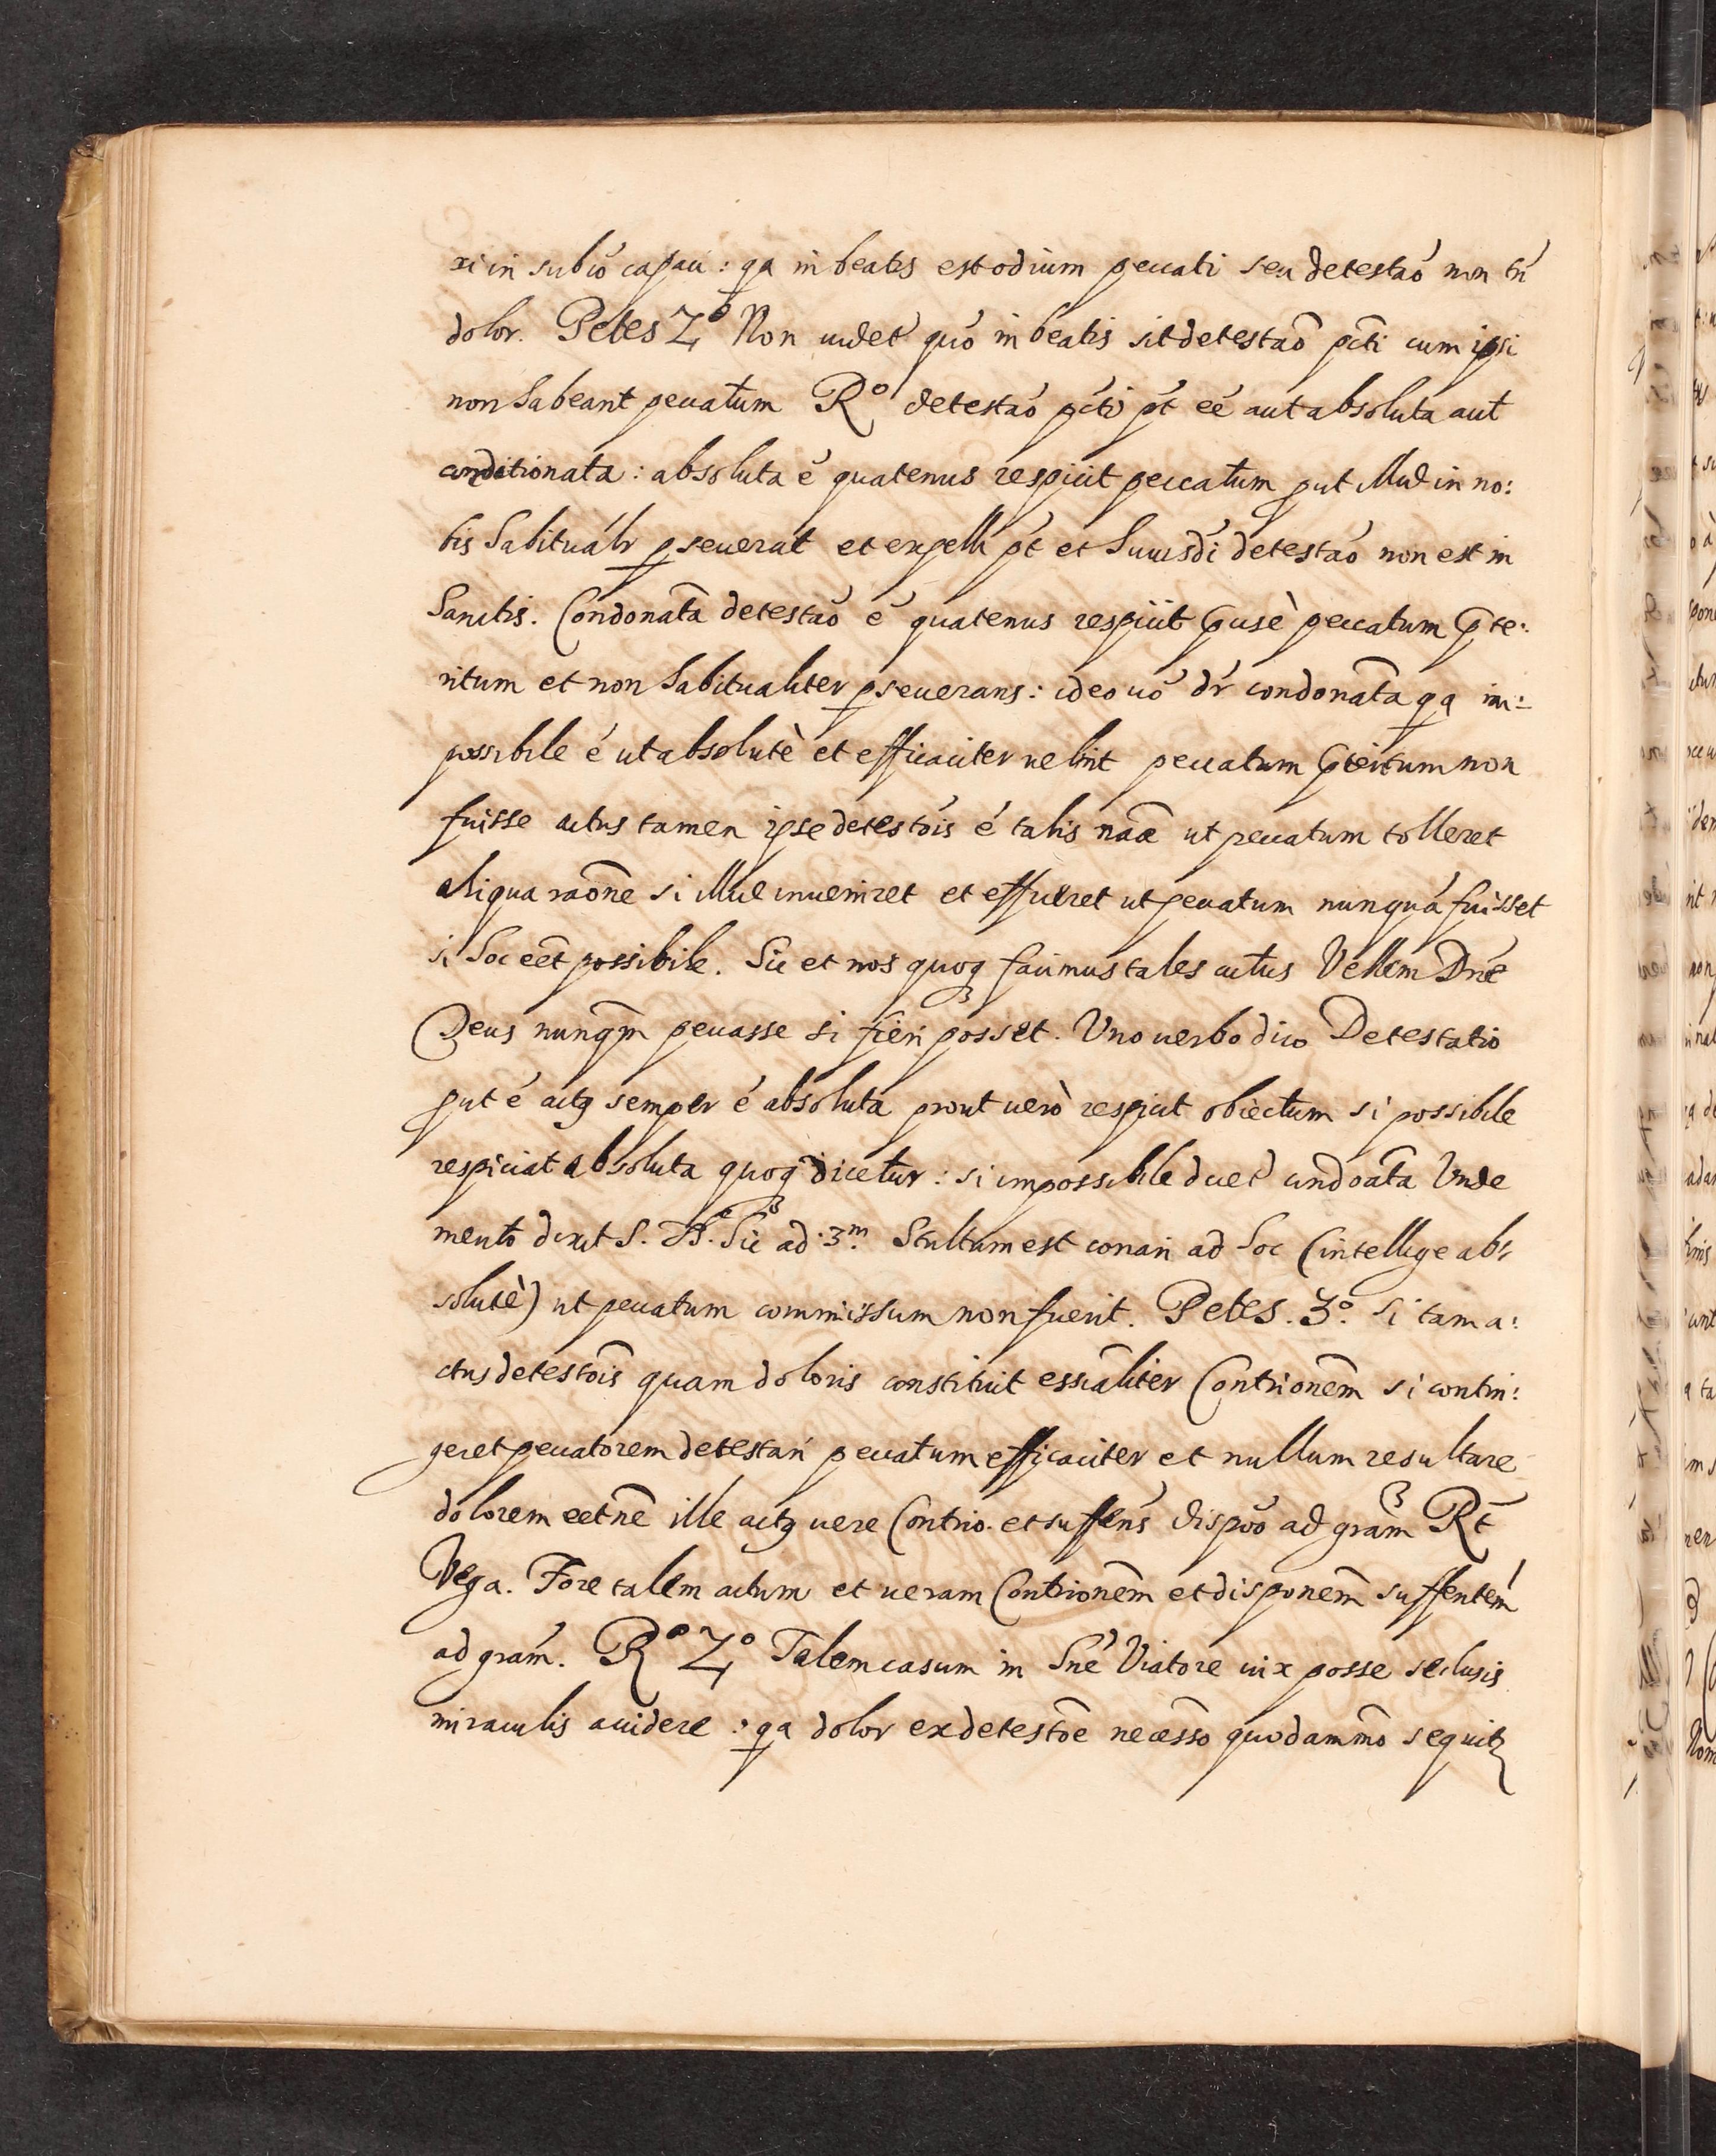 xi in subiō capaci : qa in beatis est odium peccati seu detestaō non tñ
dolor. Petes 2º Non uidet' quō in beatis sit detestaō pcti cum ipsi
non habeant peccatum Rº detestaō pcti pt eē aut absoluta aut
conditionata : absoluta ē quatenus respicit peccatum put illud in no:
bis habitualr pseuerat et expelli pt et huiusdi detestaō non est in
Sanctis. Condonata detestaō ē quatenus respicit peccatum pte:
ritum et non habitualiter pseuerans : ideo uō dr condonata qa im:
possibile ē ut absolutè et efficaciter uelint peccatum pteritum non
fuisse actus tamen ipse detestōis ē talis naæ ut peccatum tolleret
aliqua raōne si illud inueniret et efficeret ut peccatum nunquā fuisset
si hoc eēt possibile. Sic et nos quoq facimus tales actus Vellem Dñe
Deus nunqm peccasse si fieri posset. Vno uerbo dico Detestatio
put ē actq semper ē absoluta prout uerò respicit obiectum si possibile
respiciat absoluta quoq dicetur : si impossibile dicet' condoata Vnde
merito dixit S. hic ad 3m. Stultum est conari ad hoc (intellige ab:
solutè) ut peccatum commissum non fuerit. Petes. 3º. si tam a:
ctus detestōis quam doloris constituit essāliter Contrionem si contin:
geret peccatorem detestari peccatum efficaciter et nullum resultare
dolorem eētne ille actq uere Contrio. et suffens dispoō ad gram Rt
Vega. Fore talem actum et ueram Contrionem et disponem suffentem
ad gram. Rº 2º Talem casum in hne Viatore uix posse seclusis
miraculis accidere : qa dolor ex detestōe necessō quodammō sequitq